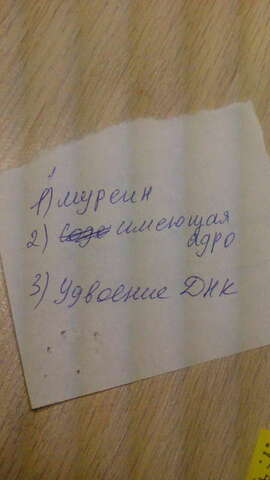 1) муреин
2) имеющая
ядро
3) Удвоение ДНК